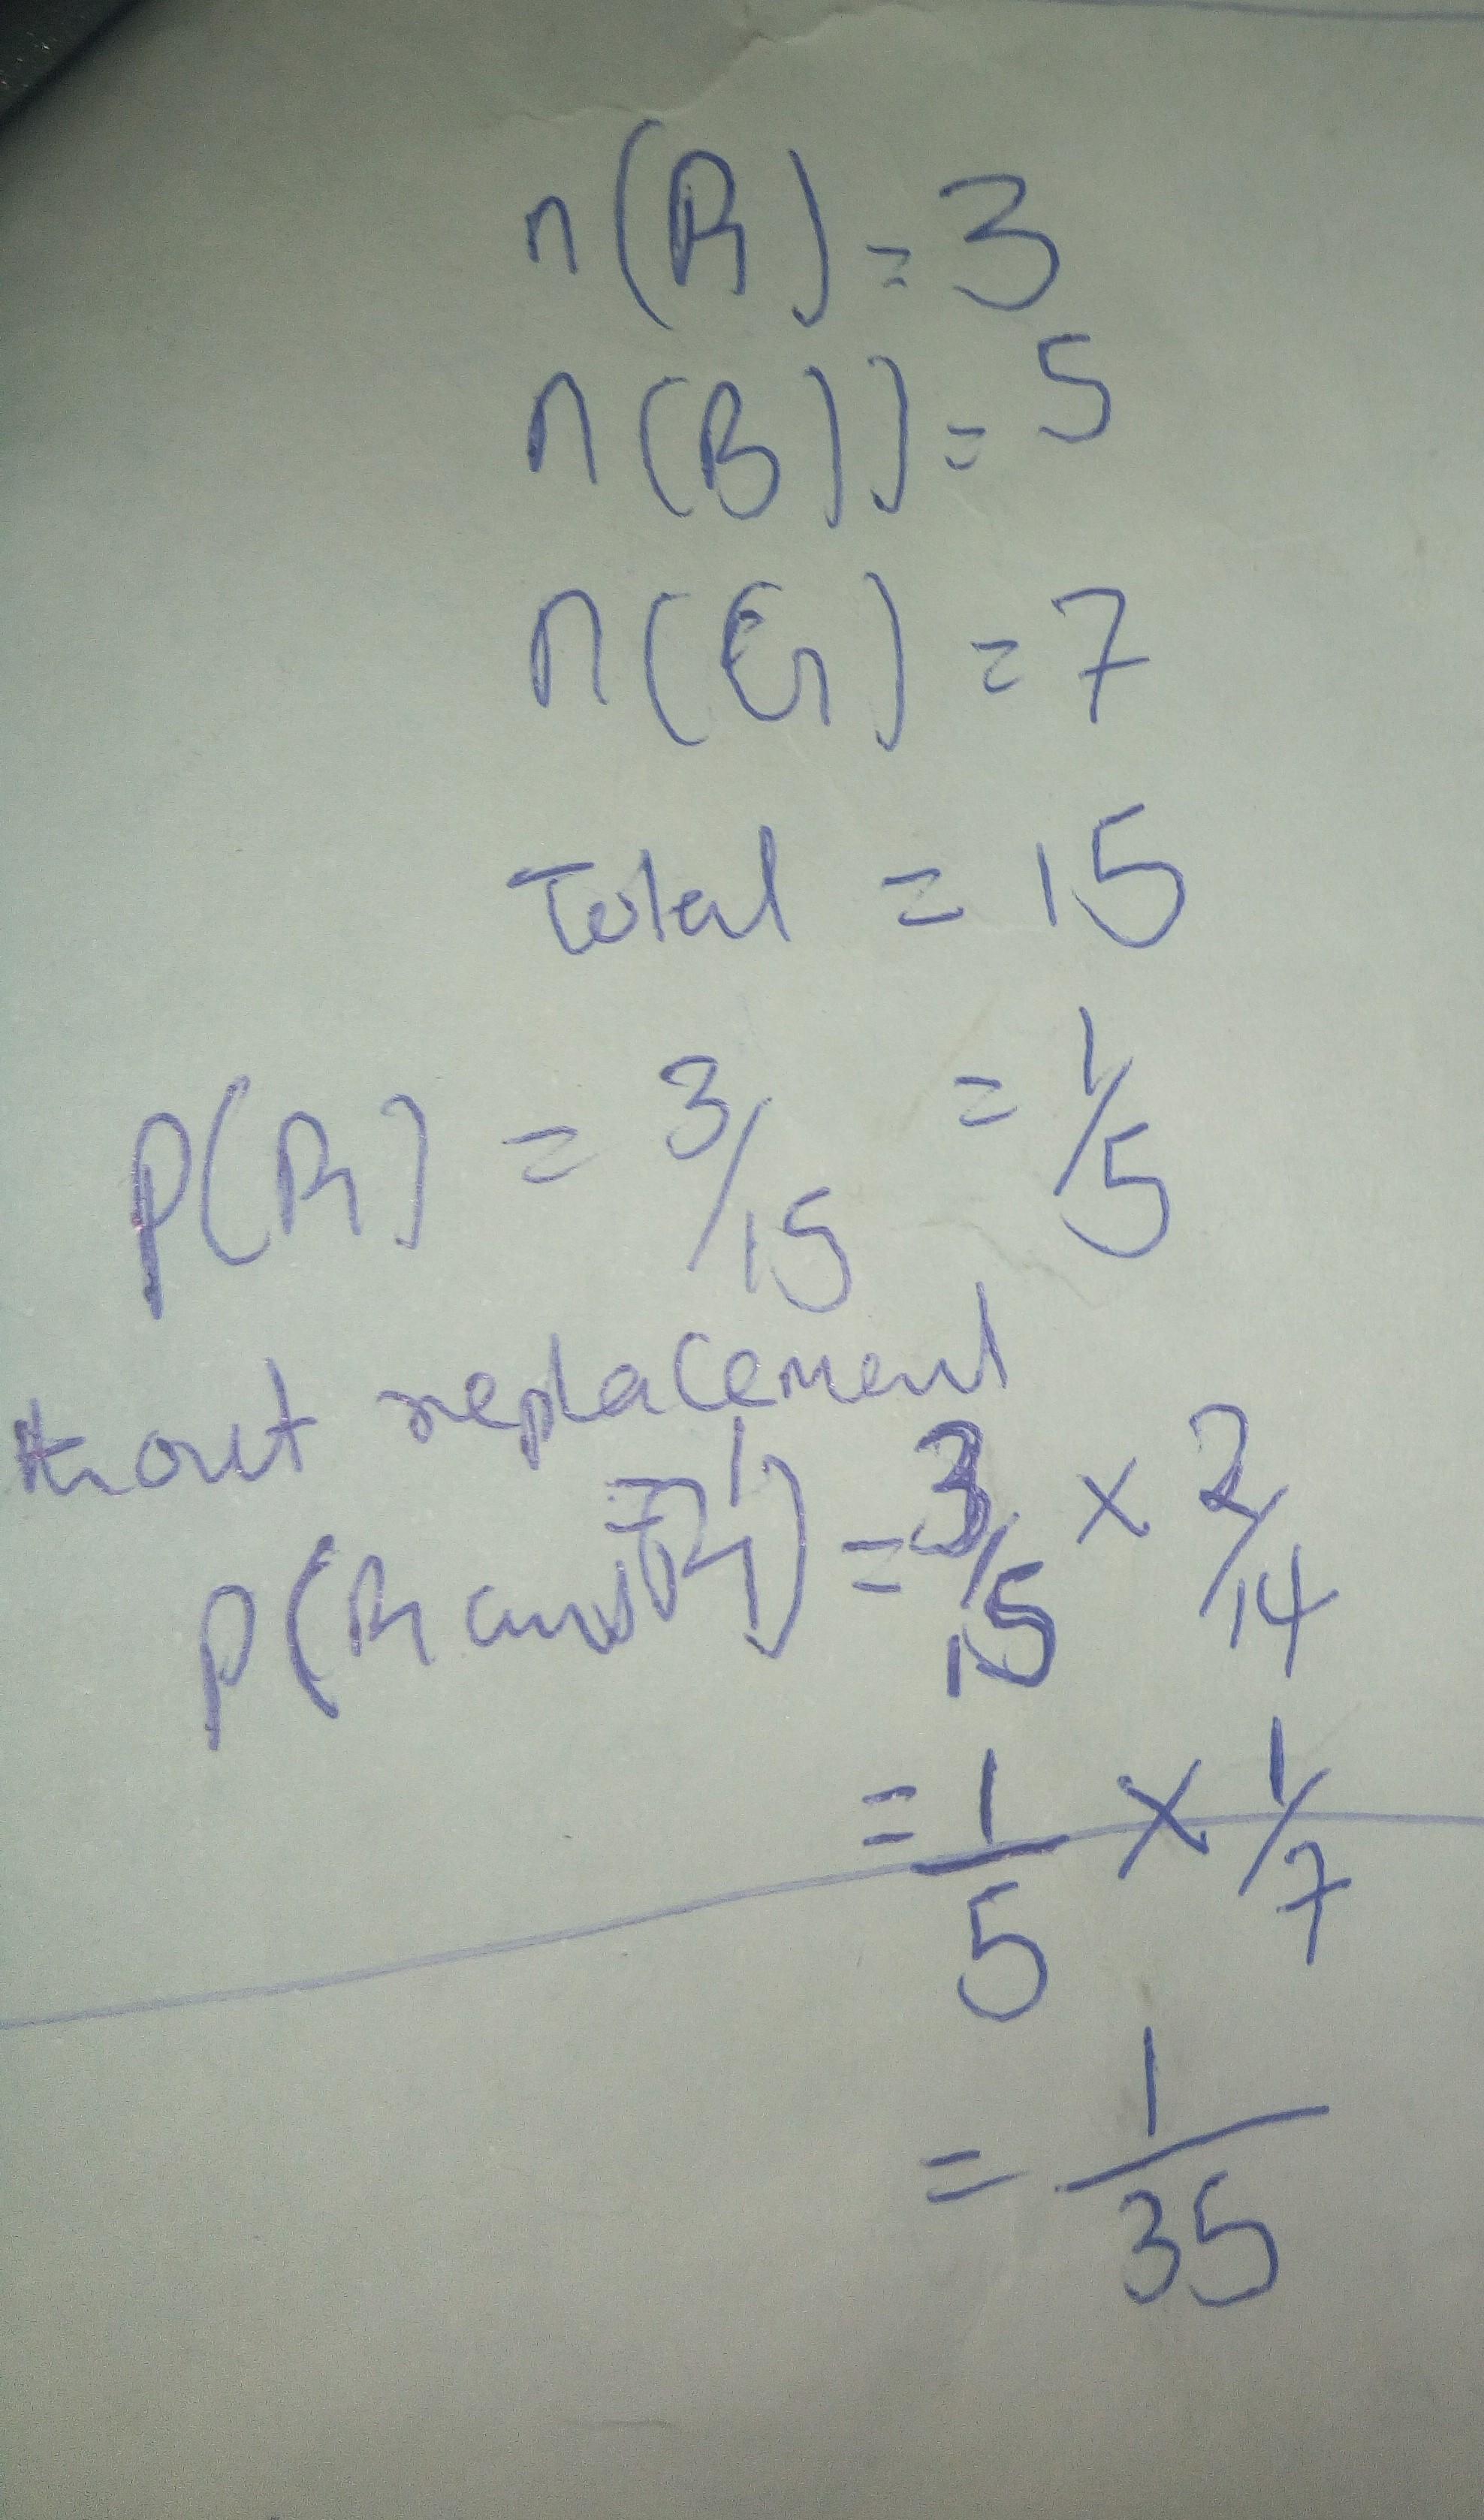 n(R) = 3
n(B)) = 5
n(G) = 7
Total = 15
P(R) = 3/15 = 1/5
thout replacement
P(R and R') = 3/15 x 2/14
= 1/5 x 1/7
= 1/35